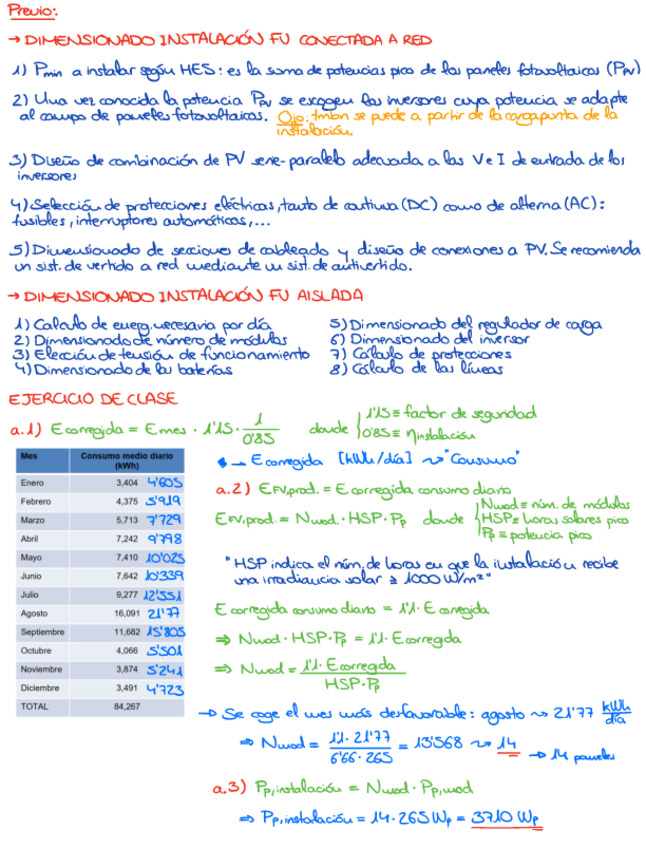 Previo:
→ DIMENSIONADO INSTALACIÓN FV CONECTADA A RED
1) Pmin a instalar según HES: es la suma de potencias pico de los paneles fotovoltaicos (PPV)
2) Una vez conocida la potencia PPV se escogen los inversores cuya potencia se adapte
al campo de paneles fotovoltaicos. Ojo: tmbn se puede a partir de la carga punta de la
instalación.
3) Diseño de combinación de PV serie-paralelo adecuada a las V e I de entrada de los
inversores
4) Selección de protecciones eléctricas, tanto de continua (DC) como de alterna (AC):
fusibles, interruptores automáticos,...
5) Dimensionado de secciones de cableado y diseño de conexiones a PV. Se recomienda
un sist. de vertido a red mediante un sist. de antivertido.
→ DIMENSIONADO INSTALACIÓN FV AISLADA
1) Calculo de energ. necesaria por día
2) Dimensionado de número de módulos
3) Elección de tensión de funcionamiento
4) Dimensionado de las baterías
5) Dimensionado del regulador de carga
6) Dimensionado del inversor
7) Cálculo de protecciones
8) Cálculo de las líneas
EJERCICIO DE CLASE
a.1) Ecorregida = Emes · 1'15 · 1/0'85 donde { 1'15 ≡ factor de seguridad
0'85 ≡ ηinstalación
Mes Consumo medio diario (kWh)
Enero 3,404 4'605
Febrero 4,375 5'919
Marzo 5,713 7'729
Abril 7,242 9'798
Mayo 7,410 10'025
Junio 7,642 10'339
Julio 9,277 12'551
Agosto 16,091 21'77
Septiembre 11,682 15'805
Octubre 4,066 5'501
Noviembre 3,874 5'241
Diciembre 3,491 4'723
TOTAL 84,267
→ Ecorregida [kWh/día] ~> "Consumo"
a.2) EFV,prod. = Ecorregida consumo diario
EFV,prod. = Nmod · HSP · Pp donde { Nmod ≡ núm. de módulos
HSP ≡ horas solares pico
Pp ≡ potencia pico
"HSP indica el núm. de horas en que la instalación recibe
una irradiancia solar ≥ 1000 W/m²"
Ecorregida consumo diario = 1'1 · Ecorregida
⇒ Nmod · HSP · Pp = 1'1 · Ecorregida
⇒ Nmod = 1'1 · Ecorregida / HSP · Pp
→ Se coge el mes más desfavorable: agosto ~> 21'77 kWh/día
⇒ Nmod = 1'1 · 21'77 / 6'66 · 265 = 13'568 ~> 14 → 14 paneles
a.3) Pp,instalación = Nmod · Pp,mod
⇒ Pp,instalación = 14 · 265 Wp = 3710 Wp